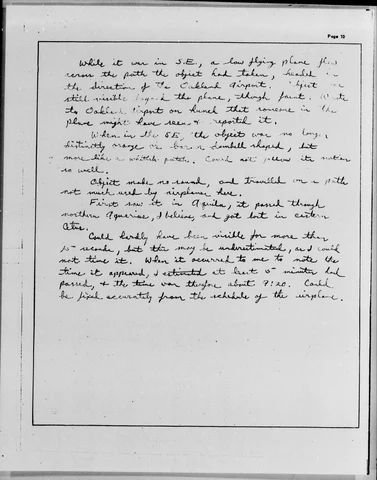 Page 10
While it was in S.E., a low flying plane flew
across the path the object had taken, headed in
the direction of the Oakland Airport. Object was
still visible beyond the plane, though faint. Wrote
to Oakland Airport on hunch that someone in the
plane might have seen & reported it.
When in the SE, the object was no longer
distinctly orange or dumbell shaped, but
more like a whitish patch. Could not follow its motion
so well.
Object made no sound, and travelled on a path
not much used by airplanes here.
First saw it in Aquila, it passed through
northern Aquarius, I believe, and got lost in eastern
Cetus.
Could hardly have been visible for more than
15 seconds, but this may be underestimated, as I could
not time it. When it occurred to me to note the
time it appeared, I estimated at least 5 minutes had
passed, & the time was therefore about 9:20. Could
be fixed accurately from the schedule of the airplane.